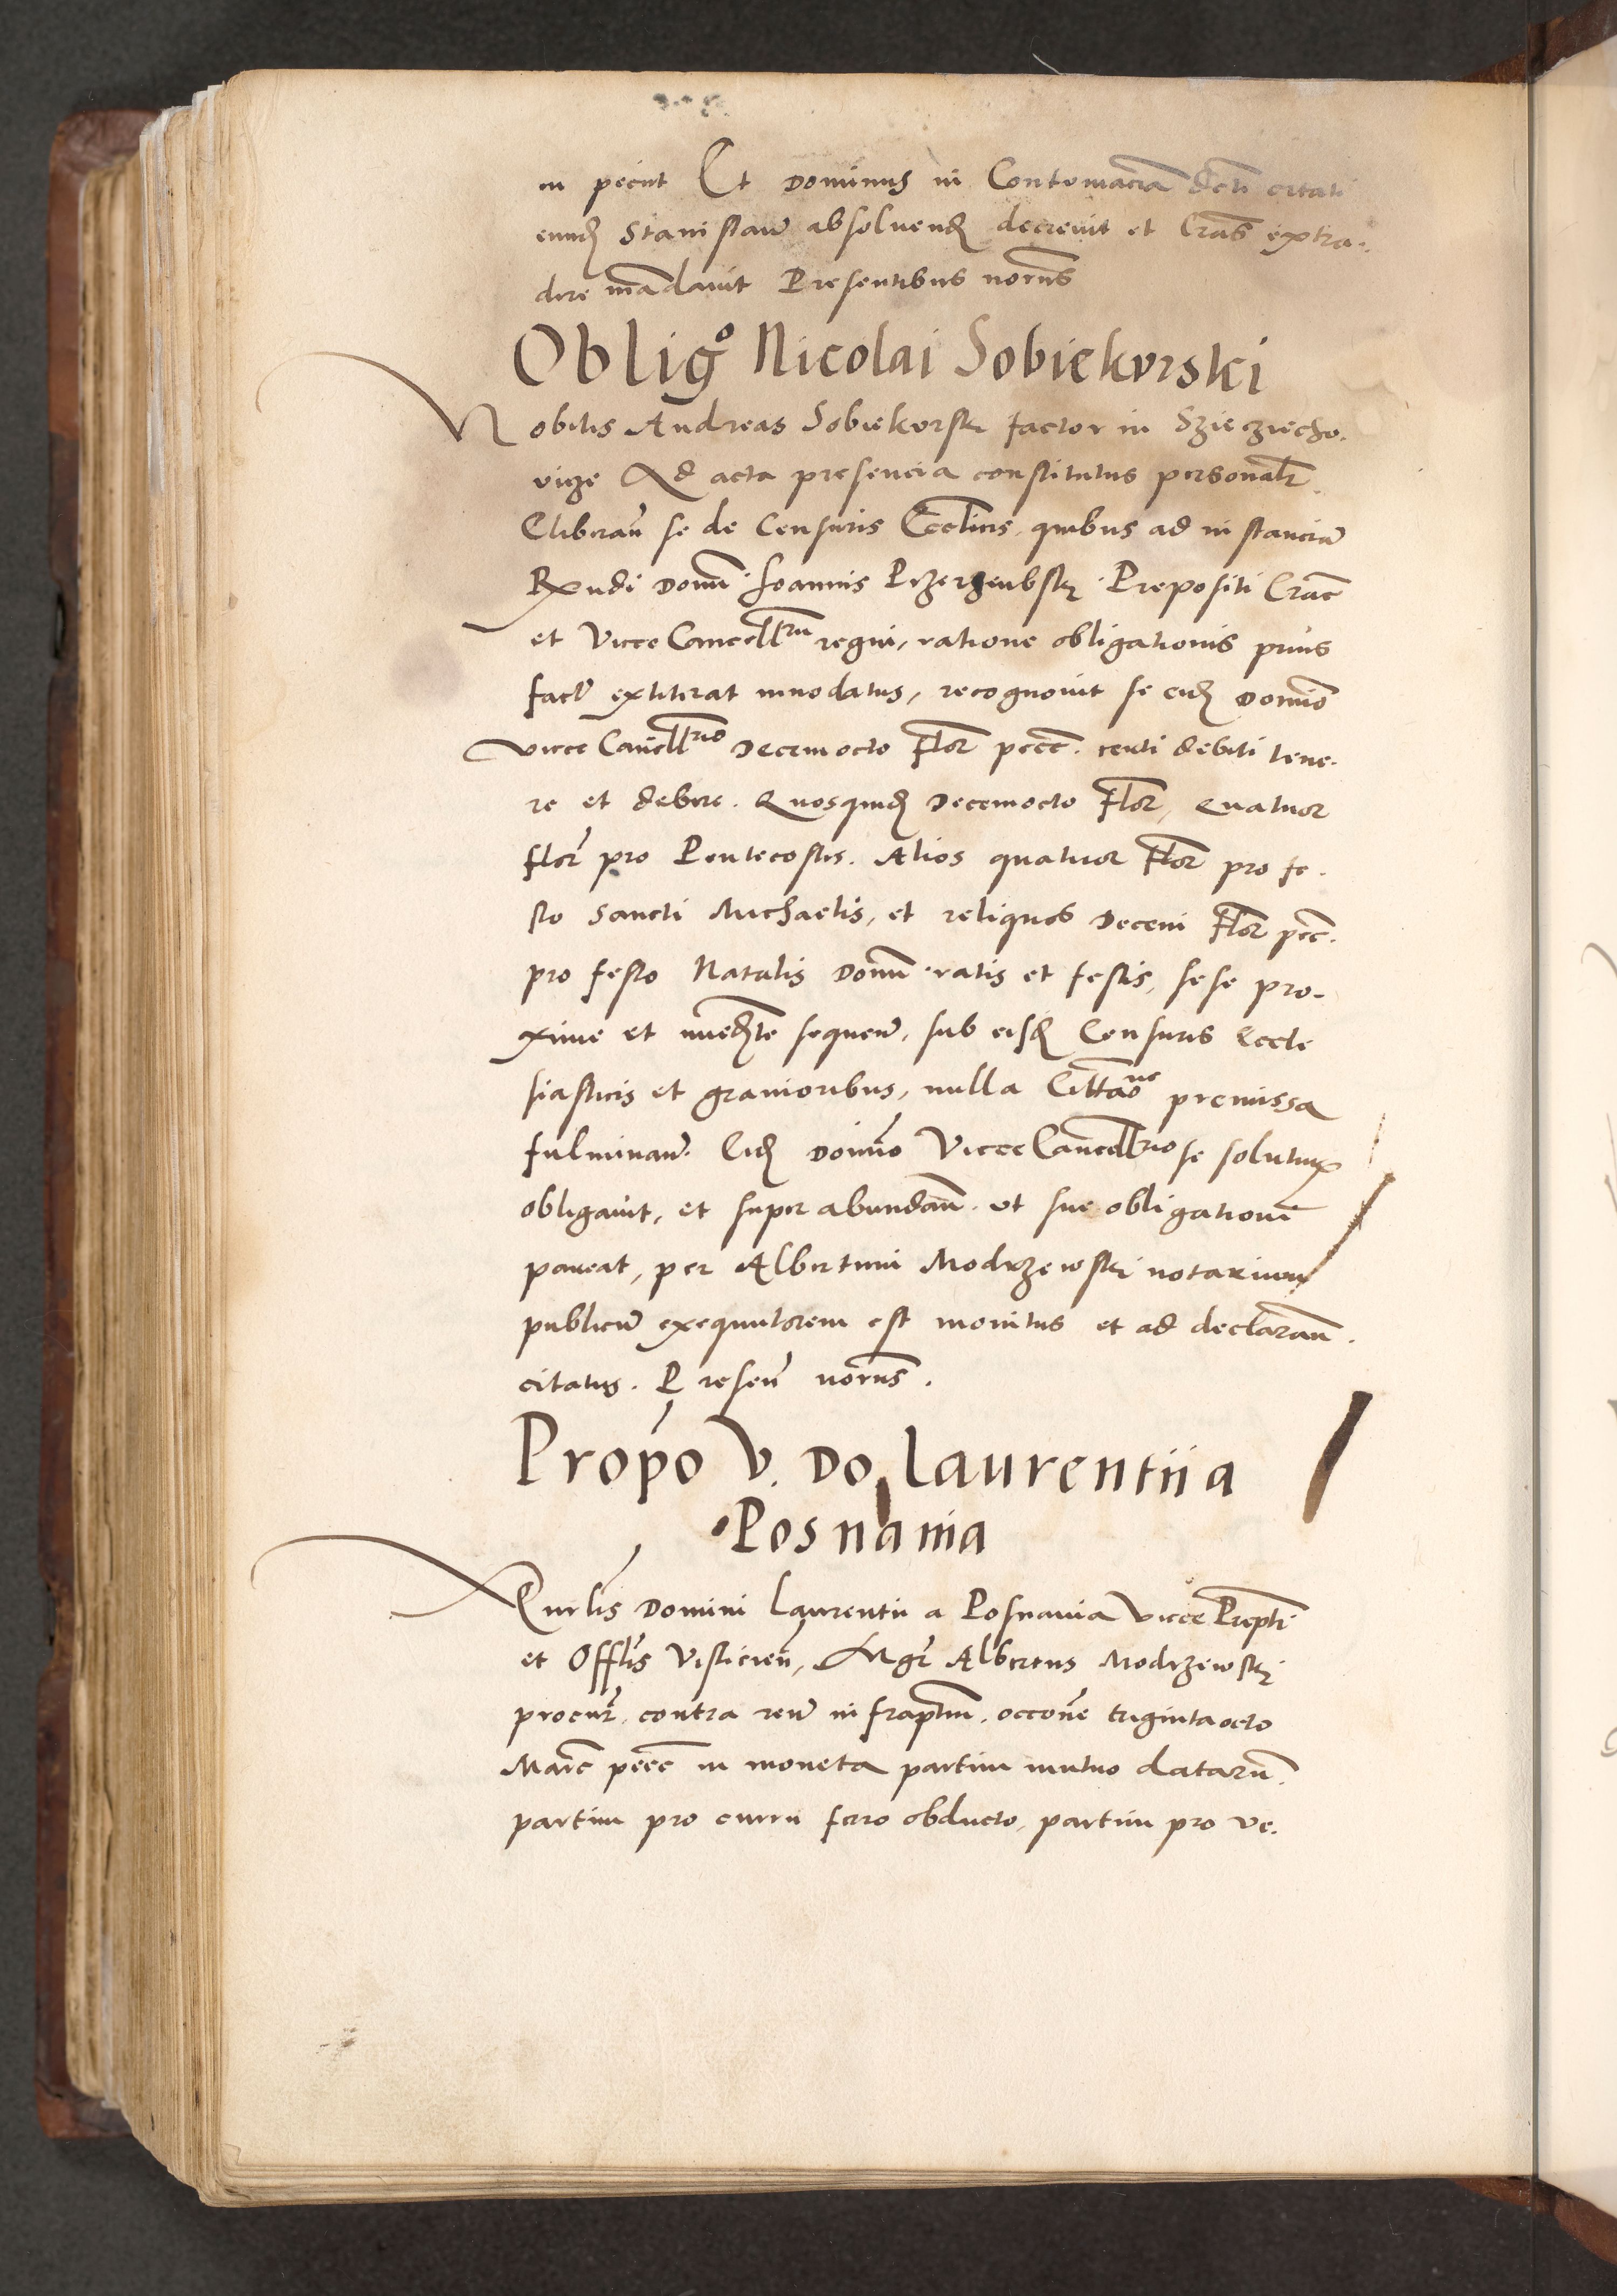 m peciit Et Dominus in Contumaciam dcti citati
eundem Stanislaum absoluend decreuit et lras extra-
dere mandauit Presentibus noriis
Obligo Nicolai Sobiekvrski
Nobilis Andreas Sobiekvrski factor in Sziecziecho-
vicze Ad acta presencia constitutus personalr
Eliberan se de Censuris Ecclicis quibus ad instanciam
Rxndi Domi Joannis Przerzembski Prepositi Crac
et Vicce Cancellrii regni, ratione obligationis prius
facte extiterat innodatus, recognouit se eidem Domino
Vicce Cancellrio Decemocto Flor pecc. certi debiti tene-
re et debere. Quosquidem Decemocto Flor, Quatuor
flor pro Pentecostes. Alios quatuor Flor pro fe-
sto Sancti Michaelis, et reliquos Decem Flor pecc.
pro festo Natalis Domi ratis et festis, sese pro-
xime et immediate sequen, sub eisdem Censuris Eccle
siasticis et grauioribus, nulla Cittaone premissa
fulminan. Eidem Domino Vicce Cancellrio se soluturum
obligauit, et super abundan. ut sue obligationi
pareat, per Albertum Modrzewski notarium
publicum exequutorem est monitus et ad declaran.
citatus. Presen noriis.
Propo V. Do Laurentii a
Posnania
Qurlis Domini Laurentii a Posnania Vicce Prepti
et Offlis Visliciens, Mgr Albertus Modrzewski
procur. contra reum infraptum. occone trigintaocto
Marc pecc in moneta partim mutuo datarum.
partim pro curru ferro obducto, partim pro ve-